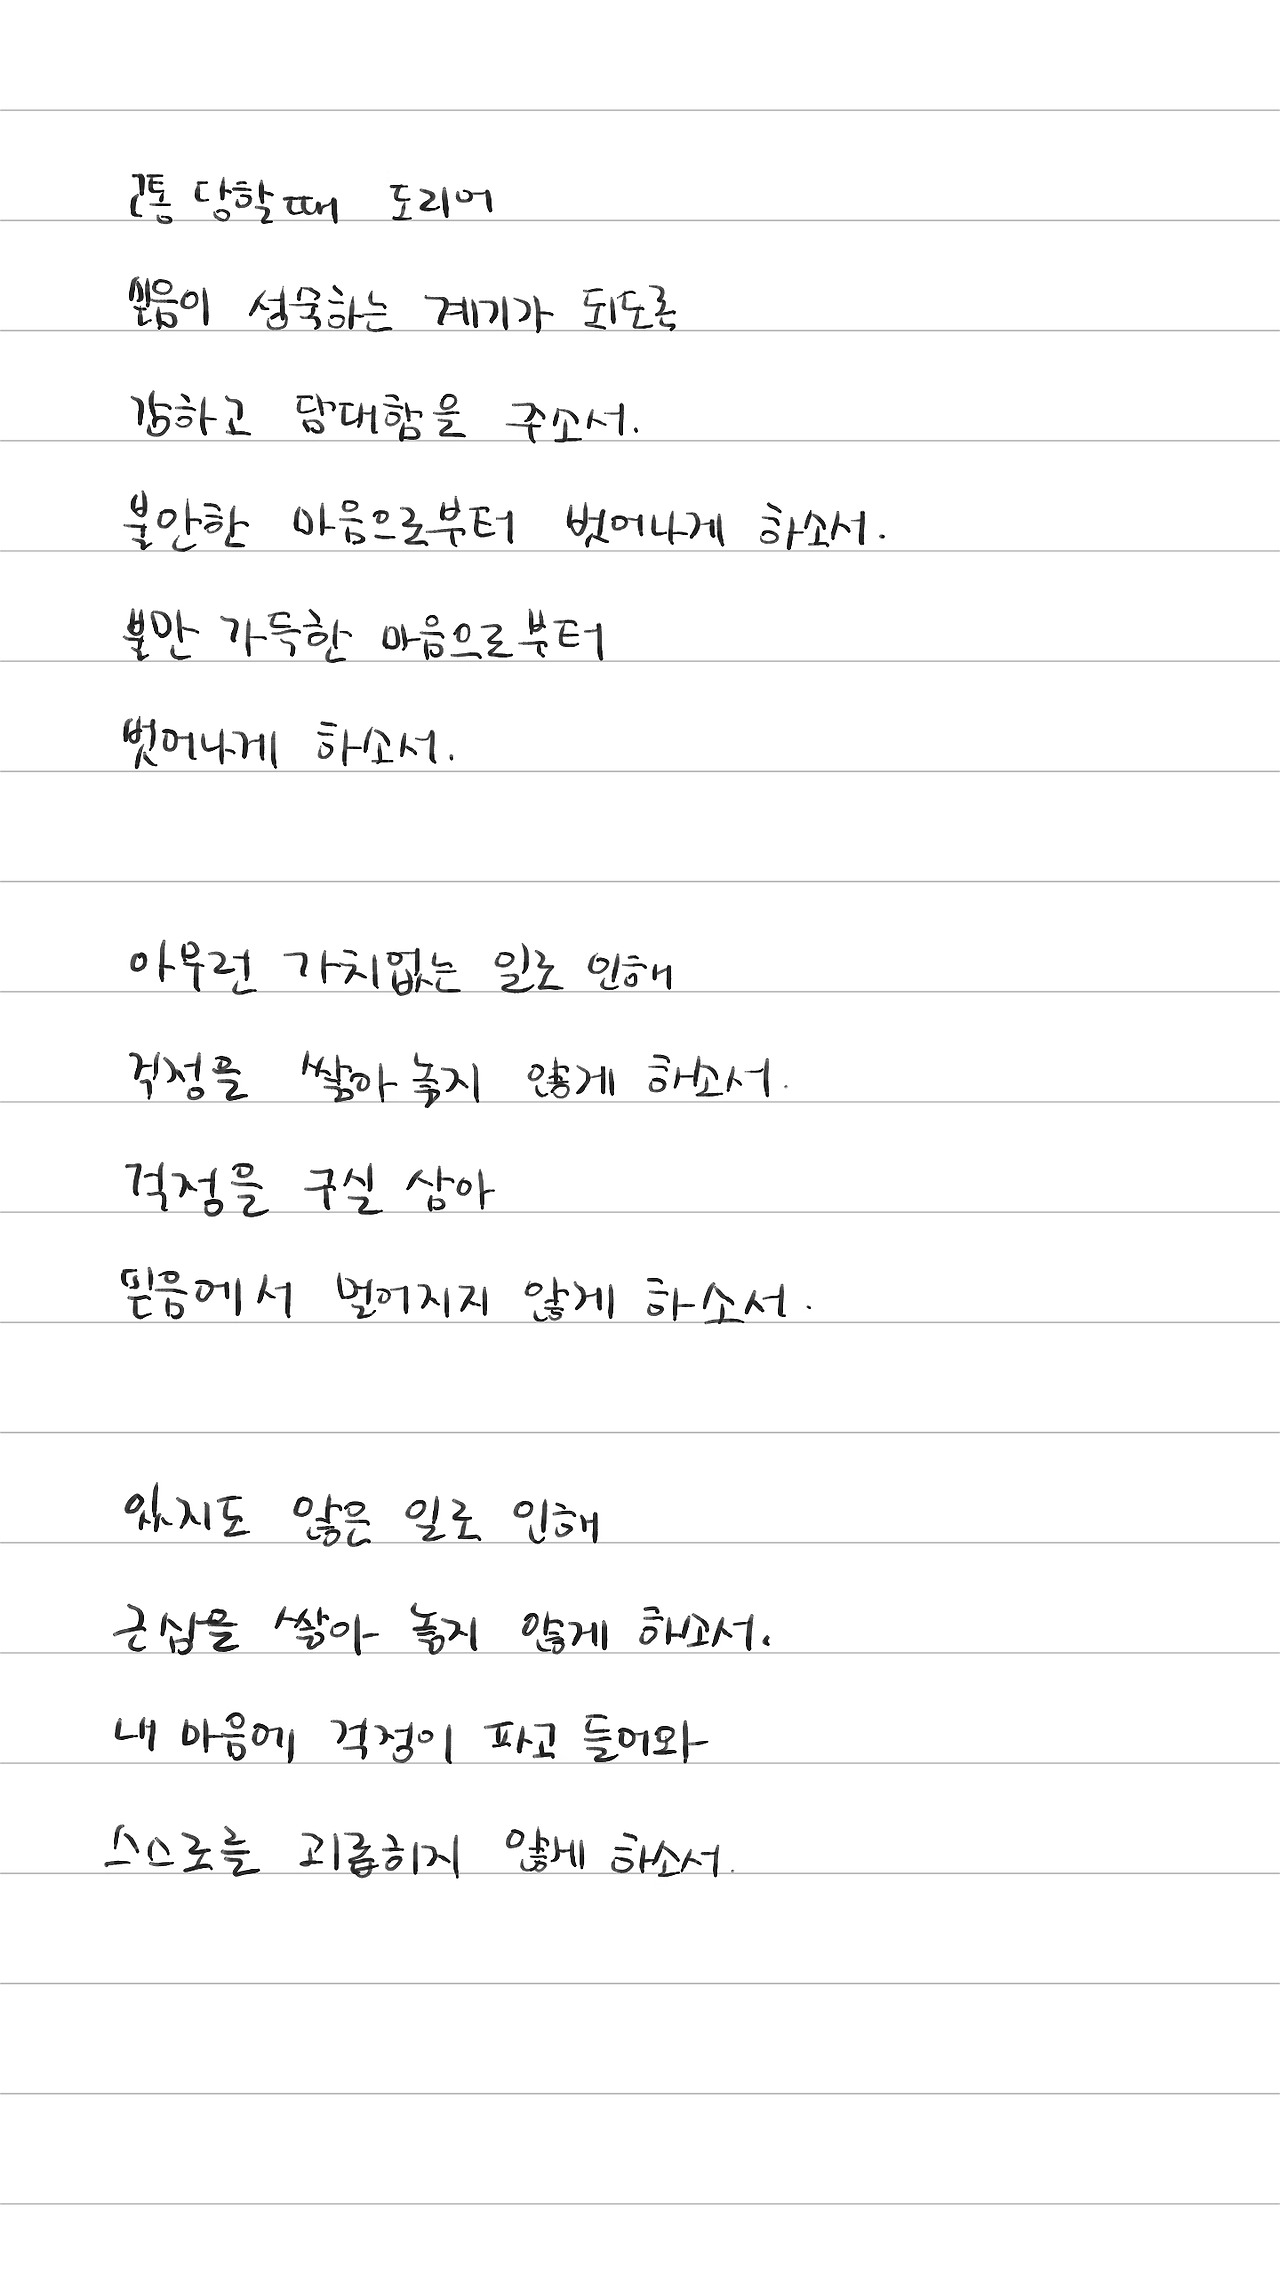 고통 당할때 도리어
믿음이 성숙하는 계기가 되도록
강하고 담대함을 주소서.
불안한 마음으로부터 벗어나게 하소서.
불만 가득한 마음으로부터
벗어나게 하소서.
아무런 가치없는 일로 인해
걱정을 쌓아 놓지 않게 하소서.
걱정을 구실 삼아
믿음에서 멀어지지 않게 하소서.
있지도 않은 일로 인해
근심을 쌓아 놓지 않게 하소서.
내 마음에 걱정이 파고 들어와
스스로를 괴롭히지 않게 하소서.